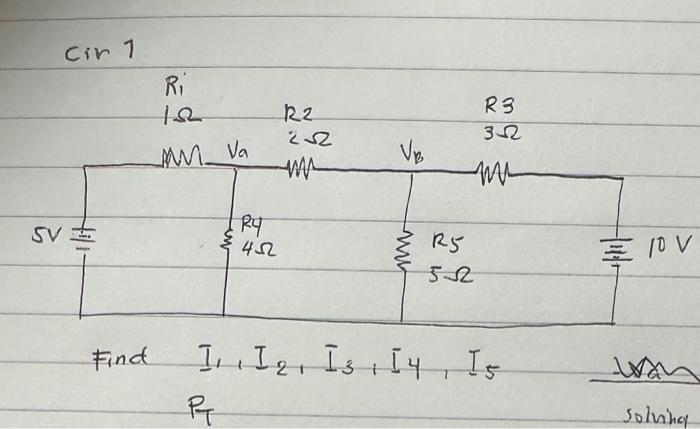 Cir 1
R1
1Ω
R2
2Ω
R3
3Ω
Va
VB
5V
R4
4Ω
R5
5Ω
10 V
Find I1, I2, I3, I4, I5
PT
solving